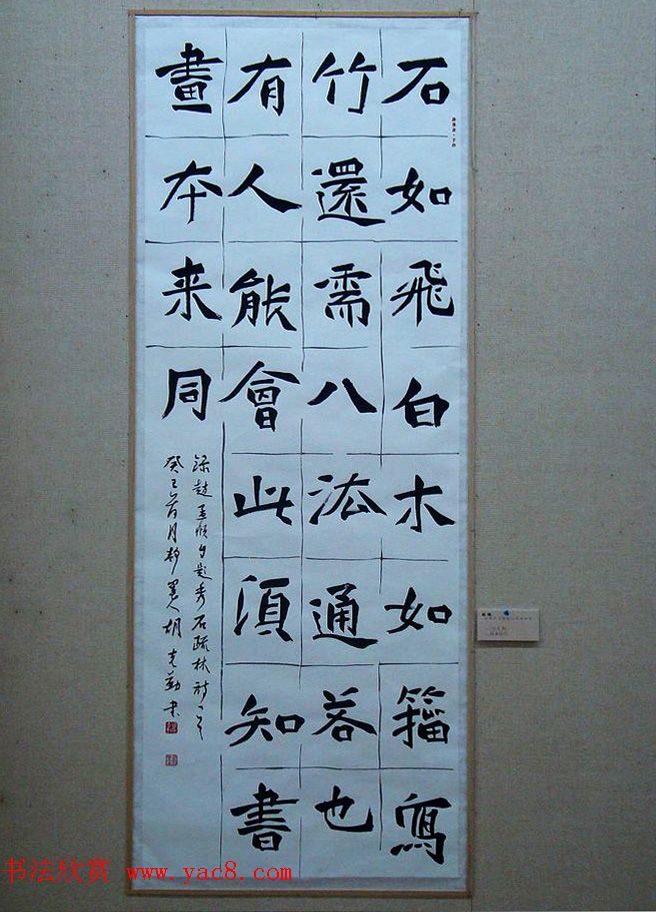 石如飛白木如籀寫
竹還需八法通若也
有人能會此須知書
畫本来同
录趙孟頫自題秀石疏林詩一首
癸巳首月静寬人胡克勤书
书法欣赏 www.yac8.com